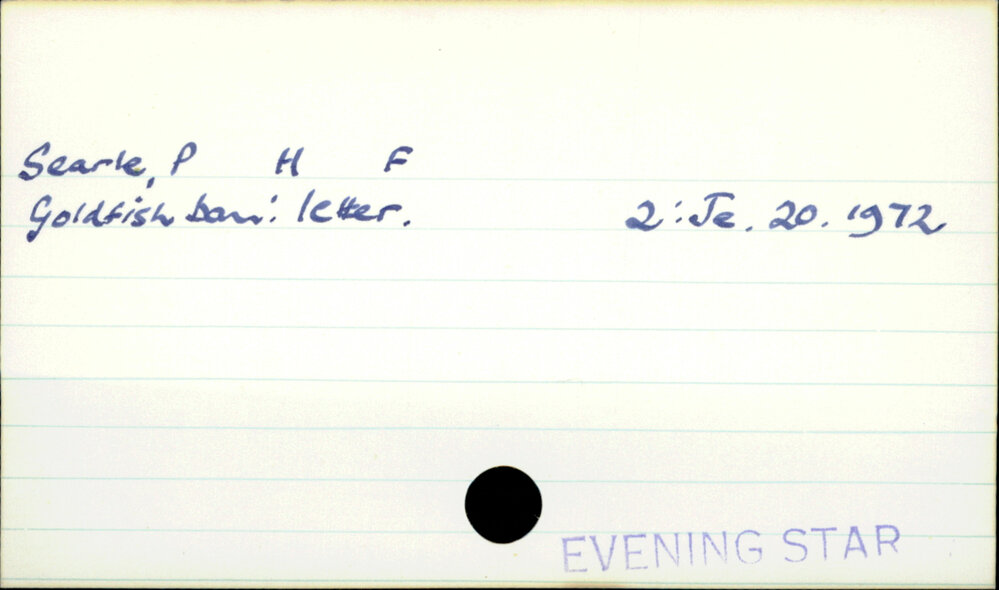 Searle, P H F
Goldfish ban: letter. 2: Je. 20. 1972
EVENING STAR